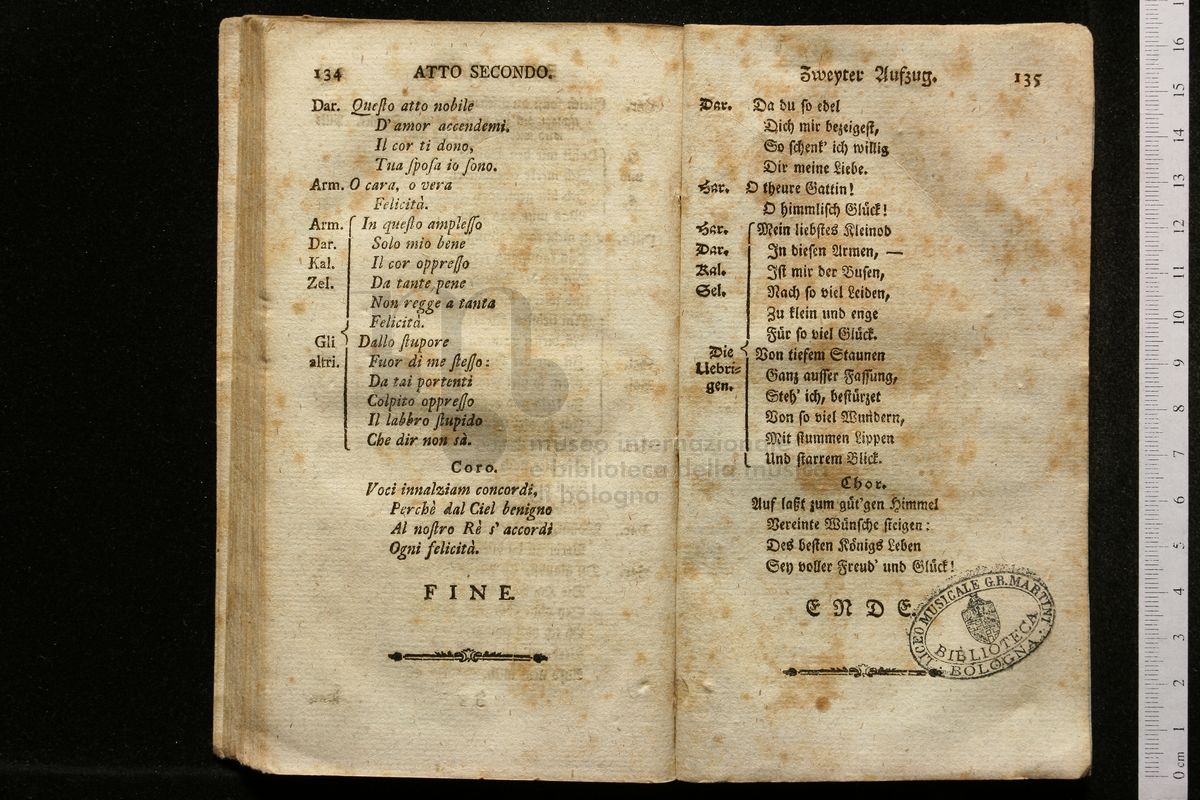 134 ATTO SECONDO.
Dar. Queſto atto nobile
D' amor accendemi.
Il cor ti dono,
Tua ſpoſa io ſono.
Arm. O cara, o vera
Felicità.
Arm. In queſto ampleſſo
Dar. Solo mio bene
Kal. Il cor oppreſſo
Zel. Da tante pene
Non regge a tanta
Felicità.
Gli Dallo ſtupore
altri. Fuor di me ſteſſo:
Da tai portenti
Colpito oppreſſo
Il labbro ſtupido
Che dir non sà.
Coro.
Voci innalziam concordi,
Perchè dal Ciel benigno
Al noſtro Rè s' accordi
Ogni felicità.
FINE.
Zweyter Aufzug. 135
Dar. Da du ſo edel
Dich mir bezeigeſt,
So ſchenk' ich willig
Dir meine Liebe.
Har. O theure Gattin!
O himmliſch Glück!
Har. Mein liebſtes Kleinod
Dar. In dieſen Armen, —
Kal. Iſt mir der Buſen,
Sel. Nach ſo viel Leiden,
Zu klein und enge
Für ſo viel Glück.
Die Von tiefem Staunen
Uebri- Ganz auſſer Faſſung,
gen. Steh' ich, beſtürzet
Von ſo viel Wundern,
Mit ſtummen Lippen
Und ſtarrem Blick.
Chor.
Auf laßt zum güt'gen Himmel
Vereinte Wünſche ſteigen:
Des beſten Königs Leben
Sey voller Freud' und Glück!
ENDE
LICEO MUSICALE G.B. MARTINI
BIBLIOTECA
BOLOGNA
museo internazionale
e biblioteca della musica
di bologna
0 cm 1 2 3 4 5 6 7 8 9 10 11 12 13 14 15 16